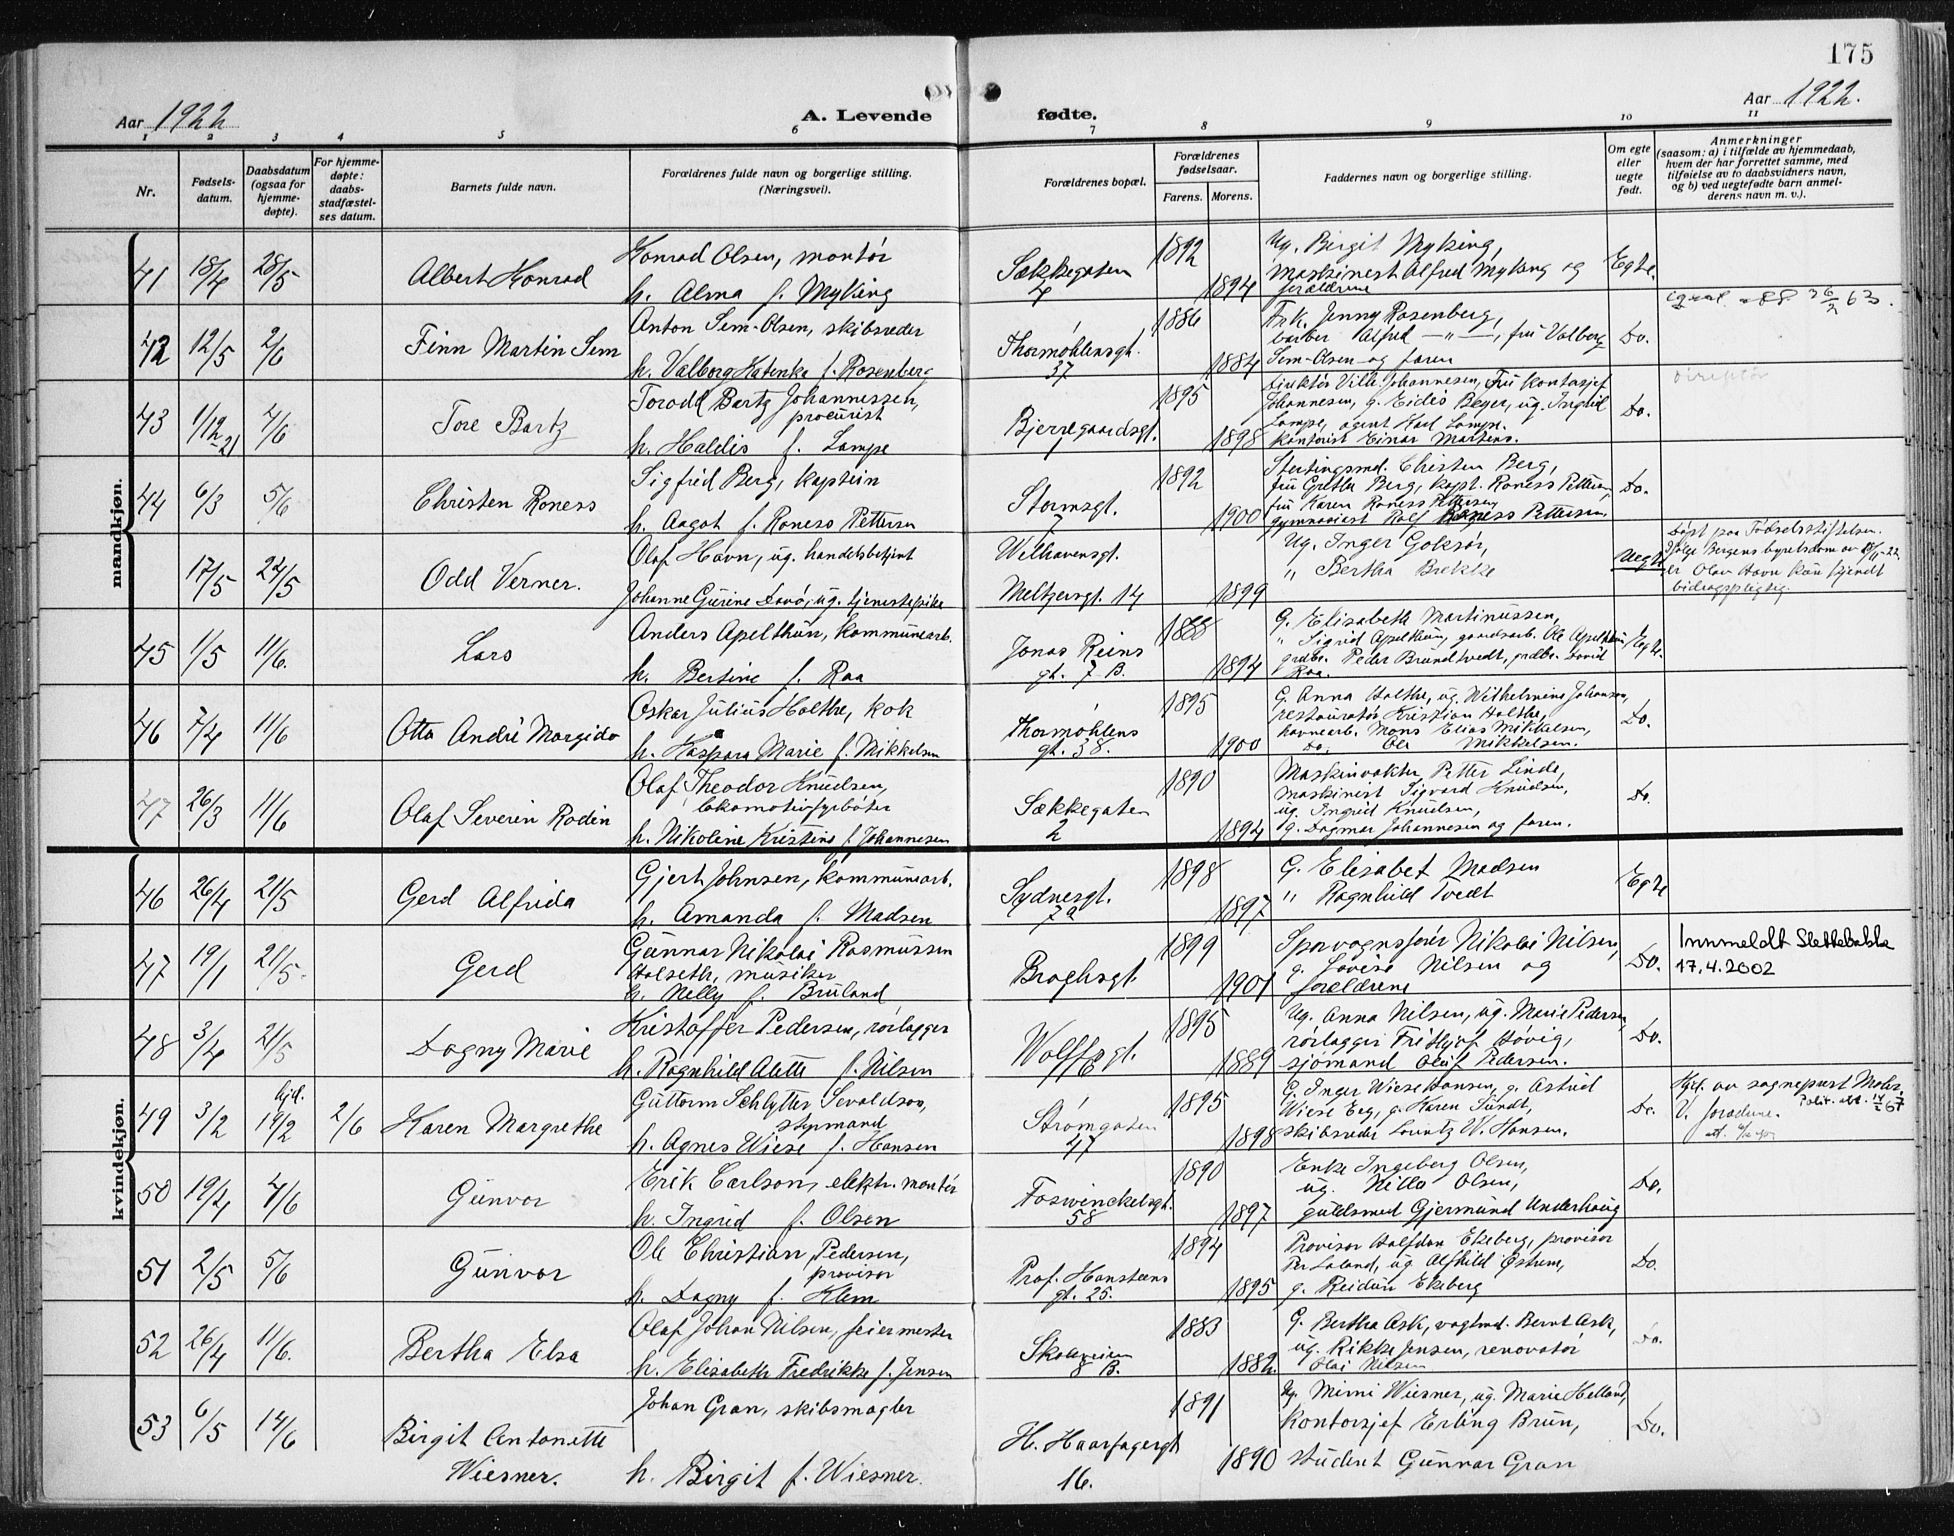 175
Aar 1922
A. Levende
fødte.
Aar 1922.
1 2 3 4 5 6 7 8 9 10 11
Nr.
Fødsels-
datum.
Daabsdatum
(ogsaa for
hjemme-
døpte).
For hjemme-
døpte:
daabs-
stadfæstel-
ses datum.
Barnets fulde navn.
Forældrenes fulde navn og borgerlige stilling.
(Næringsvei).
Forældrenes bopæl.
Forældrenes
fødselsaar.
Farens. Morens.
Faddernes navn og borgerlige stilling.
Om egte
eller
uegte
født.
Anmerkninger
(saasom: a) i tilfælde av hjemmedaab,
hvem der har forrettet samme, med
tilføielse av to daabsvidners navn,
og b) ved uegtefødte barn anmel-
derens navn m. v.).
mandkjøn.
41 18/4 28/5 Albert Konrad
Konrad Olsen, montør
h. Alma f. Myking
Sækkegaten
4
1892
1894
Ug. Birgit Myking,
maskinist Alfred Myking og
forældrene
Egte.
42 12/5 2/6 Finn Martin Sem
Anton Sem-Olsen, skibsreder
h. Valborg Katenka f. Rosenberg
Thormøhlensgt.
37
1886
1884
Frk. Jenny Rosenberg,
barber Alfred —"—, fru Valborg
Sem-Olsen og faren
Do.
43 1/12-21 4/6 Tore Bartz
Torodd Bartz Johannessen,
procurist
h. Haldis f. Lampe
Bjerregaardsgt.
1
1895
1898
Direktør Vilh. Johannesen, Fru Kontorsjef
Johannesen, g. Eidis Beyer, ug. Ingrid
Lampe, agent Karl Lampe.
Kontorist Einar Martens.
Do.
direktør
44 6/3 5/6 Christen Roness
Sigfred Berg, kaptein
h. Aagot f. Roness Pettersen
Stormsgt.
7
1892
1900
Christen Berg,
fru Grethe Berg, kapt. Roness Pettersen,
fru Karen Roness Pettersen
gymnasiast Rolf Roness Pettersen.
Do.
17/5 22/5 Odd Verner.
Olaf Havn, ug. handelsbetjent
Johanne Gurine Davø, ug. tjenestepike
Welhavensgt.
Meltzersgt. 14
1899
Ug. Inger Goksør,
" Bertha Brekke
Uegte
Døpt paa Fødselsstiftelsen.
Ifølge Bergens byretsdom av
er Olav Havn kun kjendt
bidragspligtig.
45 1/5 11/6. Lars
Anders Apelthun, kommunearb.
h. Bertine f. Raa
Jonas Reins
gt. 7 B.
1888
1894
G. Elisabeth Martinussen,
" Sigrid Apelthun, gaardsarb. Ole Apelthun,
grdbr. Peder Brundtvedt, grdbr. David
Raa.
Egte.
46 7/4 11/6 Otto André Margido
Oskar Julius Holthe, kok
h. Kaspara Marie f. Mikkelsen
Thormøhlens
gt. 38.
1895
1900
G. Anna Holthe, ug. Wilhelmine Johansen,
restauratør Kristian Holthe,
havnearb. Mons Elias Mikkelsen,
Do. Ole Mikkelsen.
Do.
47 26/3 11/6 Olaf Severin Rodin
Olaf Theodor Knudsen,
lokomotivfyrbøter
h. Nikoline Kristine f. Johannesen
Sækkegaten
2
1890
1894
Maskinvakter Petter Linde,
maskinist Sigvard Knudsen,
ug. Ingrid Knudsen,
g. Dagmar Johannesen og faren.
Do.
kvindekjøn.
46 26/4 21/5 Gerd Alfrida
Gjert Johnsen, kommunearb.
h. Amanda f. Madsen
Sydnesgt.
7a
1898
1897
G. Elisabet Madsen
" Ragnhild Tvedt
Egte
47 19/1 21/5. Gerd
Gunnar Nikolai Rasmussen
Halseth, musiker
h. Nelly f. Bruland
Brochsgt.
1899
1901
Sporvognsfører Nikolai Nilsen,
g. Lovise Nilsen og
forældrene
Do.
Innmeldt Slettebakke
17.4.2002
48 3/4 21/5 Dagny Marie
Kristoffer Pedersen, rørlægger
h. Ragnhild Alette f. Nilsen
Wolffsgt.
1895
1889
Ug. Anna Nilsen, ug. Marie Pedersen,
rørlægger Fridtjof Høvig,
sjømand Oluf Pedersen.
Do.
49 3/2 hjd. 19/2 2/6 Karen Margrethe
Guttorm Schlytter Sevaldson,
styrmand
h. Agnes Wiese f. Hansen
Strømgaten
47
1895
1898
G. Inger Wiese Hansen, g. Astrid
Wiese Erg, g. Karen Sundt,
skibsreder Lauritz W. Hansen.
Do.
Hjd. av sogneprest Mohr
V. foreldrene.
50 19/4 4/6 Gunvor
Erik Carlson, elektr. montør
h. Ingrid f. Olsen
Foswinckelsgt.
58
1890
1897
Enke Ingeborg Olsen,
ug. Nilla Olsen,
guldsmed Gjermund Underhaug
Do.
51 2/5 5/6 Gunvor
Ole Christian Pedersen,
provisor
h. Dagny f. Klem
Prof. Hansteens
gt. 25.
1894
1895
Provisor Halfdan Ekeberg, provisor
Per Laland, ug Alfhild Østrem,
g. Reidun Ekeberg
Do.
52 26/4 11/6. Bertha Elsa
Olaf Johan Nilsen, feiermester
h. Elisabeth Fredrikke f. Jensen
Skoleveien
8 B.
1883
1882.
G. Bertha Ask, vagtmd. Bernt Ask,
ug. Rikke Jensen, renovatør
Olai Nilsen
Do.
53 6/5 14/6 Birgit Antonette
Wiesner.
Johan Gran, skibsmægler
h. Birgit f. Wiesner.
H. Haarfagergt
16.
1891
1890
Ug. Mimi Wiesner, ug. Marie Helland,
Kontorsjef Erling Brun,
student Gunnar Gran
Do.